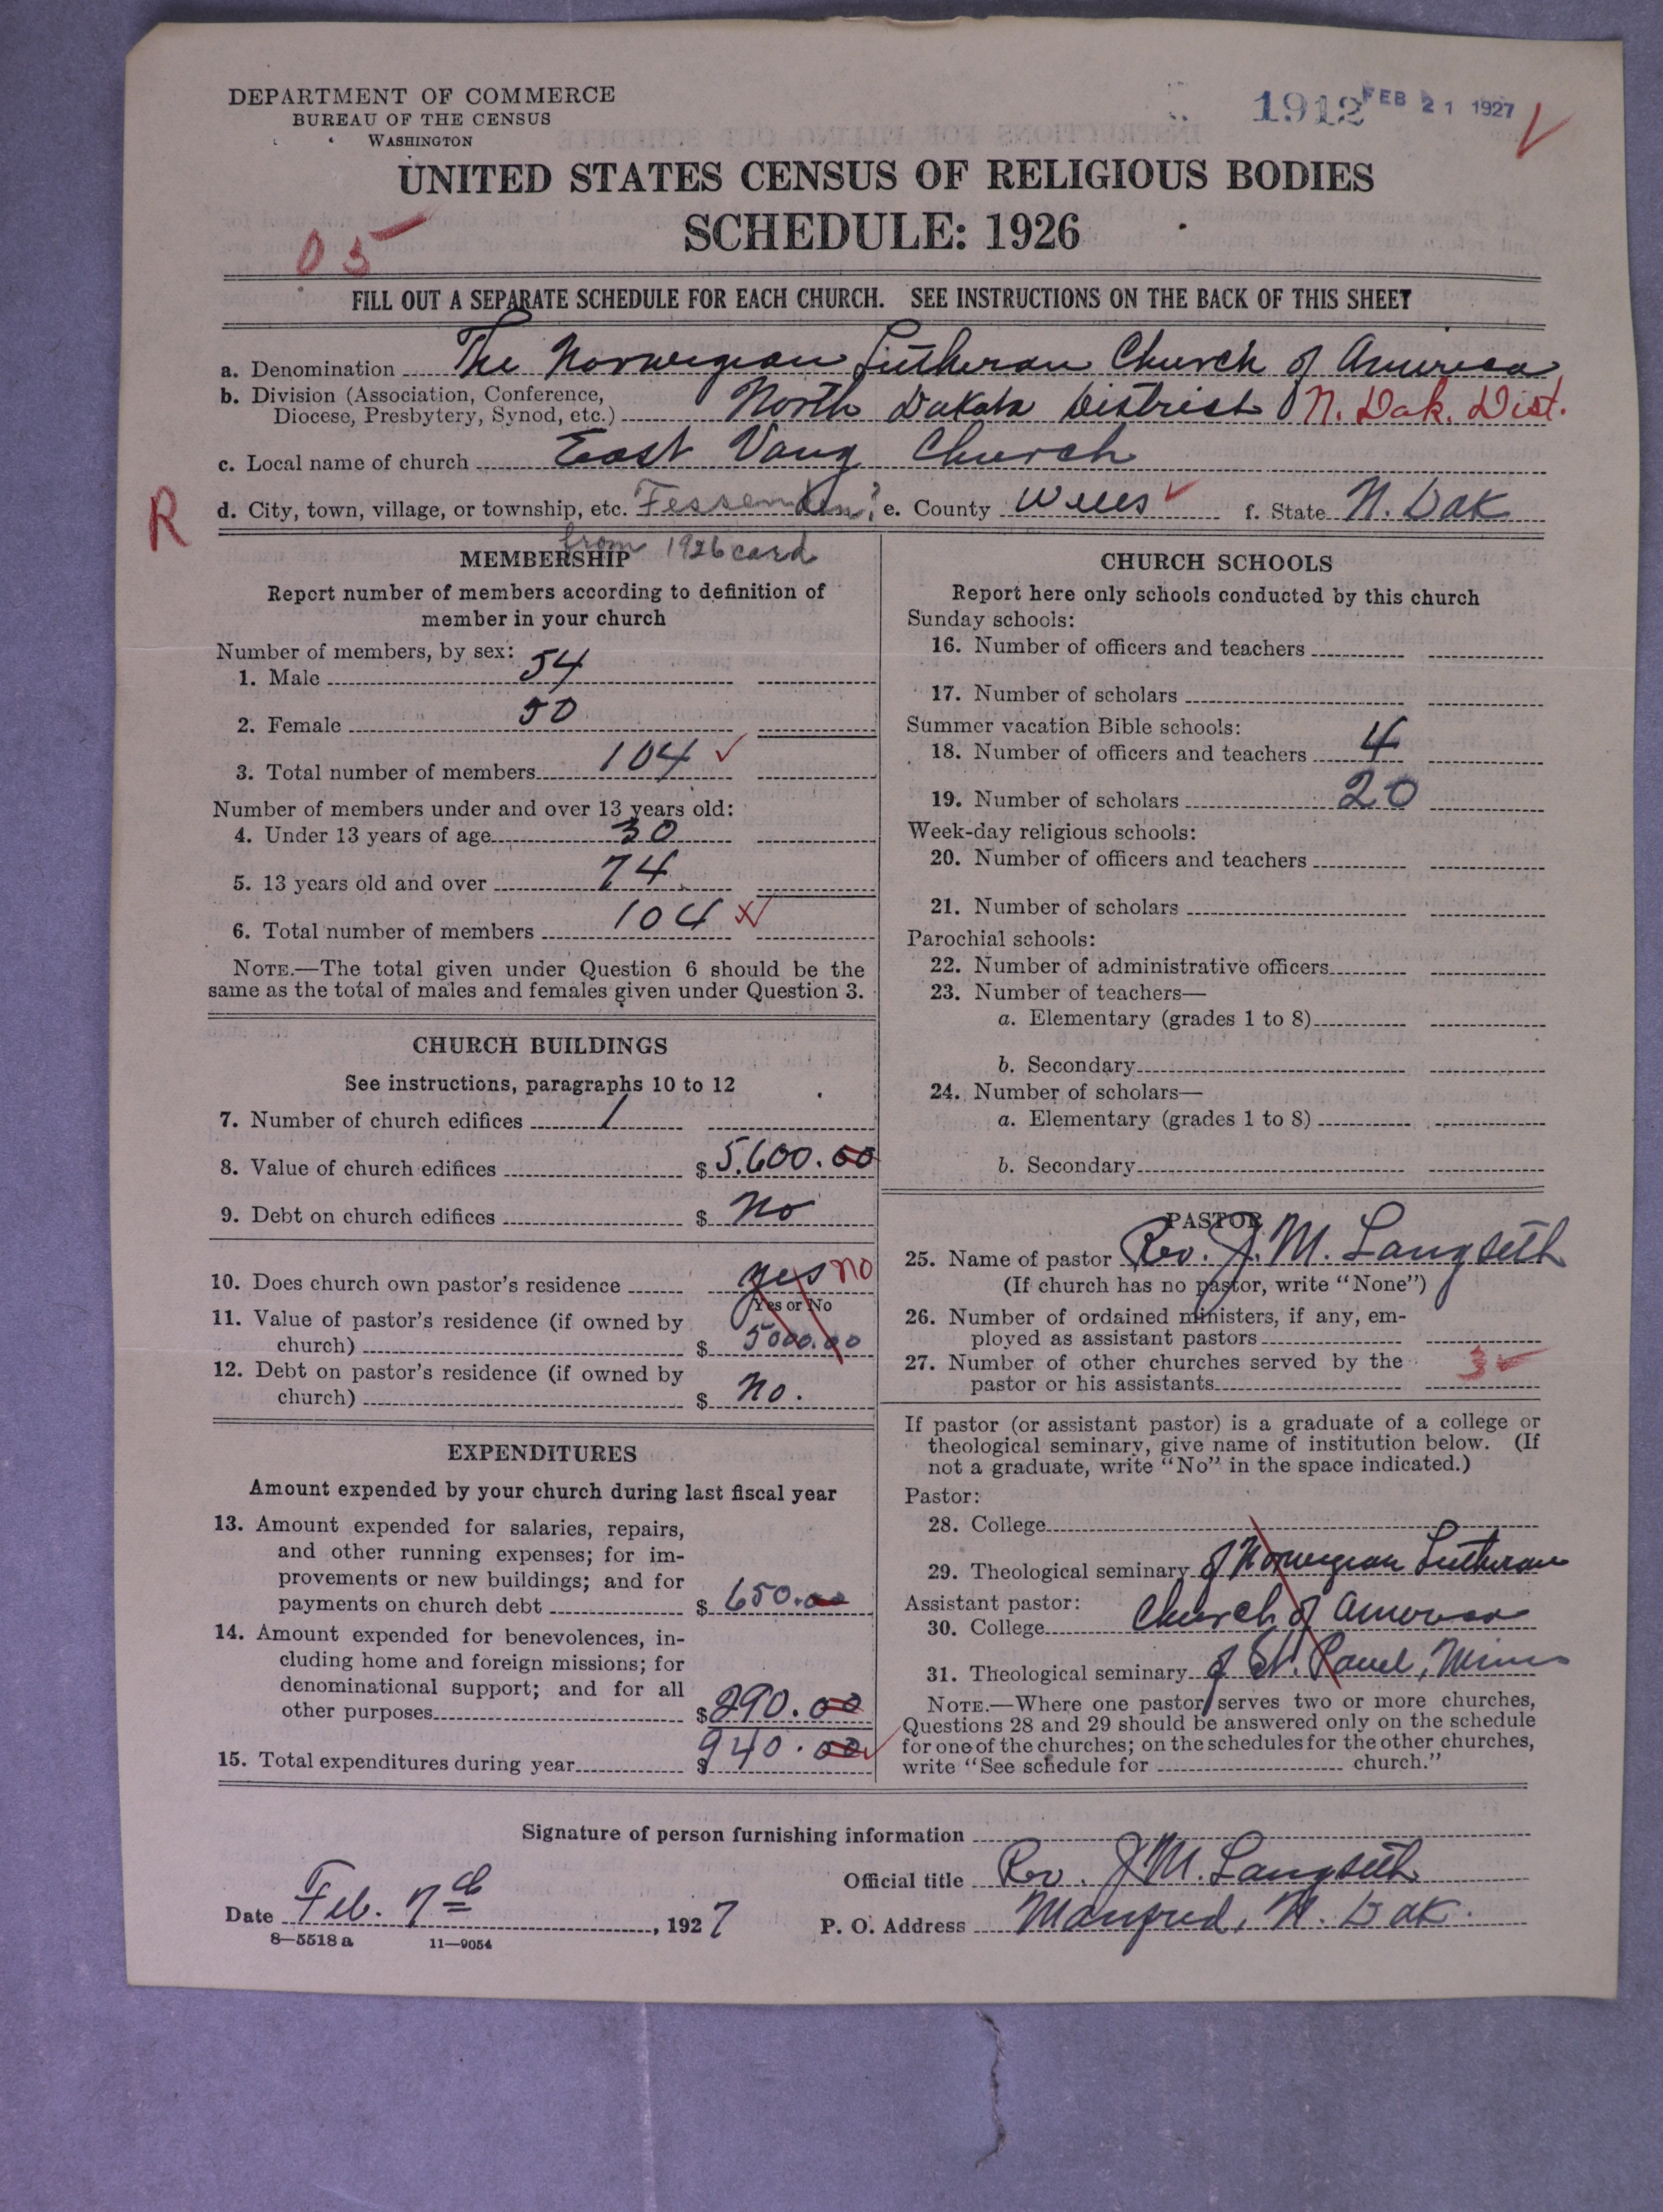 DEPARTMENT OF COMMERCE
BUREAU OF THE CENSUS
WASHINGTON
1912 FEB 21 1927
UNITED STATES CENSUS OF RELIGIOUS BODIES
SCHEDULE: 1926
05
FILL OUT A SEPARATE SCHEDULE FOR EACH CHURCH. SEE INSTRUCTIONS ON THE BACK OF THIS SHEET
a. Denomination The Norwegian Lutheran Church of America
b. Division (Association, Conference,
Diocese, Presbytery, Synod, etc.) North Dakota District N. Dak. Dist.
c. Local name of church East Vang Church
R
d. City, town, village, or township, etc. Fessenden? e. County Wells f. State N. Dak
from 1926 card
MEMBERSHIP
Report number of members according to definition of
member in your church
Number of members, by sex:
1. Male 54
2. Female 50
3. Total number of members 104
Number of members under and over 13 years old:
4. Under 13 years of age 30
5. 13 years old and over 74
6. Total number of members 104
NOTE.—The total given under Question 6 should be the
same as the total of males and females given under Question 3.
CHURCH BUILDINGS
See instructions, paragraphs 10 to 12
7. Number of church edifices 1
8. Value of church edifices $ 5,600.00
9. Debt on church edifices $ No
10. Does church own pastor's residence yes no
Yes or No
11. Value of pastor's residence (if owned by
church) $ 5000.00
12. Debt on pastor's residence (if owned by
church) $ No.
EXPENDITURES
Amount expended by your church during last fiscal year
13. Amount expended for salaries, repairs,
and other running expenses; for im-
provements or new buildings; and for
payments on church debt $ 650.00
14. Amount expended for benevolences, in-
cluding home and foreign missions; for
denominational support; and for all
other purposes $ 290.00
15. Total expenditures during year $ 940.00
CHURCH SCHOOLS
Report here only schools conducted by this church
Sunday schools:
16. Number of officers and teachers
17. Number of scholars
Summer vacation Bible schools:
18. Number of officers and teachers 4
19. Number of scholars 20
Week-day religious schools:
20. Number of officers and teachers
21. Number of scholars
Parochial schools:
22. Number of administrative officers
23. Number of teachers—
a. Elementary (grades 1 to 8)
b. Secondary
24. Number of scholars—
a. Elementary (grades 1 to 8)
b. Secondary
PASTOR
25. Name of pastor Rev. J. M. Langseth
(If church has no pastor, write "None")
26. Number of ordained ministers, if any, em-
ployed as assistant pastors
27. Number of other churches served by the
pastor or his assistants 3
If pastor (or assistant pastor) is a graduate of a college or
theological seminary, give name of institution below. (If
not a graduate, write "No" in the space indicated.)
Pastor:
28. College
29. Theological seminary of Norwegian Lutheran
Assistant pastor:
30. College Church of America
31. Theological seminary of St. Paul, Minn
NOTE.—Where one pastor serves two or more churches,
Questions 28 and 29 should be answered only on the schedule
for one of the churches; on the schedules for the other churches,
write "See schedule for church."
Signature of person furnishing information
Official title Rev. J. M. Langseth
Date Feb. 7th, 1927 P. O. Address Manfred, N. Dak.
8—5518 a 11—9054